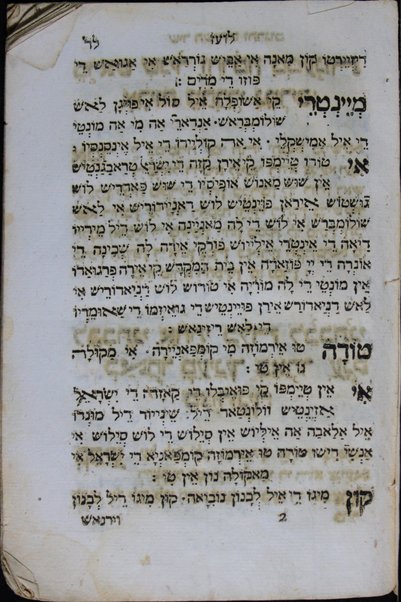 לועז לד
דיקוויירטו קון מאנה אי אפיש נורדאש אי אגואש די
פוזו די מדים :
מייינטרי קי אשופלה איל סול איפויין לאש
שולומבראש. אנדארי אה מי אה מונטי
די איל אמישקלי. אי ארה קולייירו די איל אינסינסו :
אי טודו טיימפו קי אירן קזה די ישרא טראבגנטיש
אין שוש מאנוש אופיסיו די שוש פאדריש לוש
גושטוש איראן פויינטיש לוש דאניידוריש אי לאש
שולומבריש אי לוש די לה מאנייינה אי לוש דיל מידייו
דיאה די אינטרי איליוש פורקי אירה לה שכינה די
אונדה די יי פוזאדה אין בית המקדש קי אירה פרגואדו
אין מונטי די לה מוריה אי טודוש לוש דנייאדוריש אי
לאש דנייאדורש אירן פויינטיש די גואיזמו די שאומריו
די לאש ריזינאש :
טודה טו אירמוזה מי קומפאניירה. אי מקולה
נו אין טו :
אי אין טיימפו קי פואיבלו די קאזה די ישראל
אזיינטיש וולונטאר דיל שינייור דיל מונדו
איל אלאבה אה איליוש אין סילוש די לוש סילוש אי
אנשי דישו טודה טו אירמוזה קומפאניא די ישראל אי
מאקולה נון אין טי :
קון מיגו די איל לבנון נוביאה. קון מיגו דיל לבנון
2 וירנאש